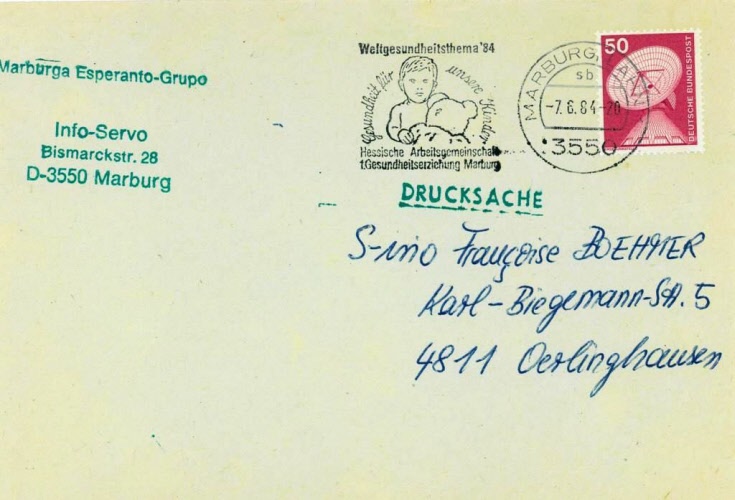 Marburga Esperanto-Grupo
Info-Servo
Bismarckstr. 28
D-3550 Marburg
Weltgesundheitsthema '84
Gesundheit für unsere Kinder
Hessische Arbeitsgemeinschaft
f.Gesundheitserziehung Marburg
MARBURG, LAHN
sb
-7.6.84-20
3550
50
DEUTSCHE BUNDESPOST
DRUCKSACHE
S-ino Françoise BOEHMER
Karl-Biegemann-Str. 5
4811 Oerlinghausen